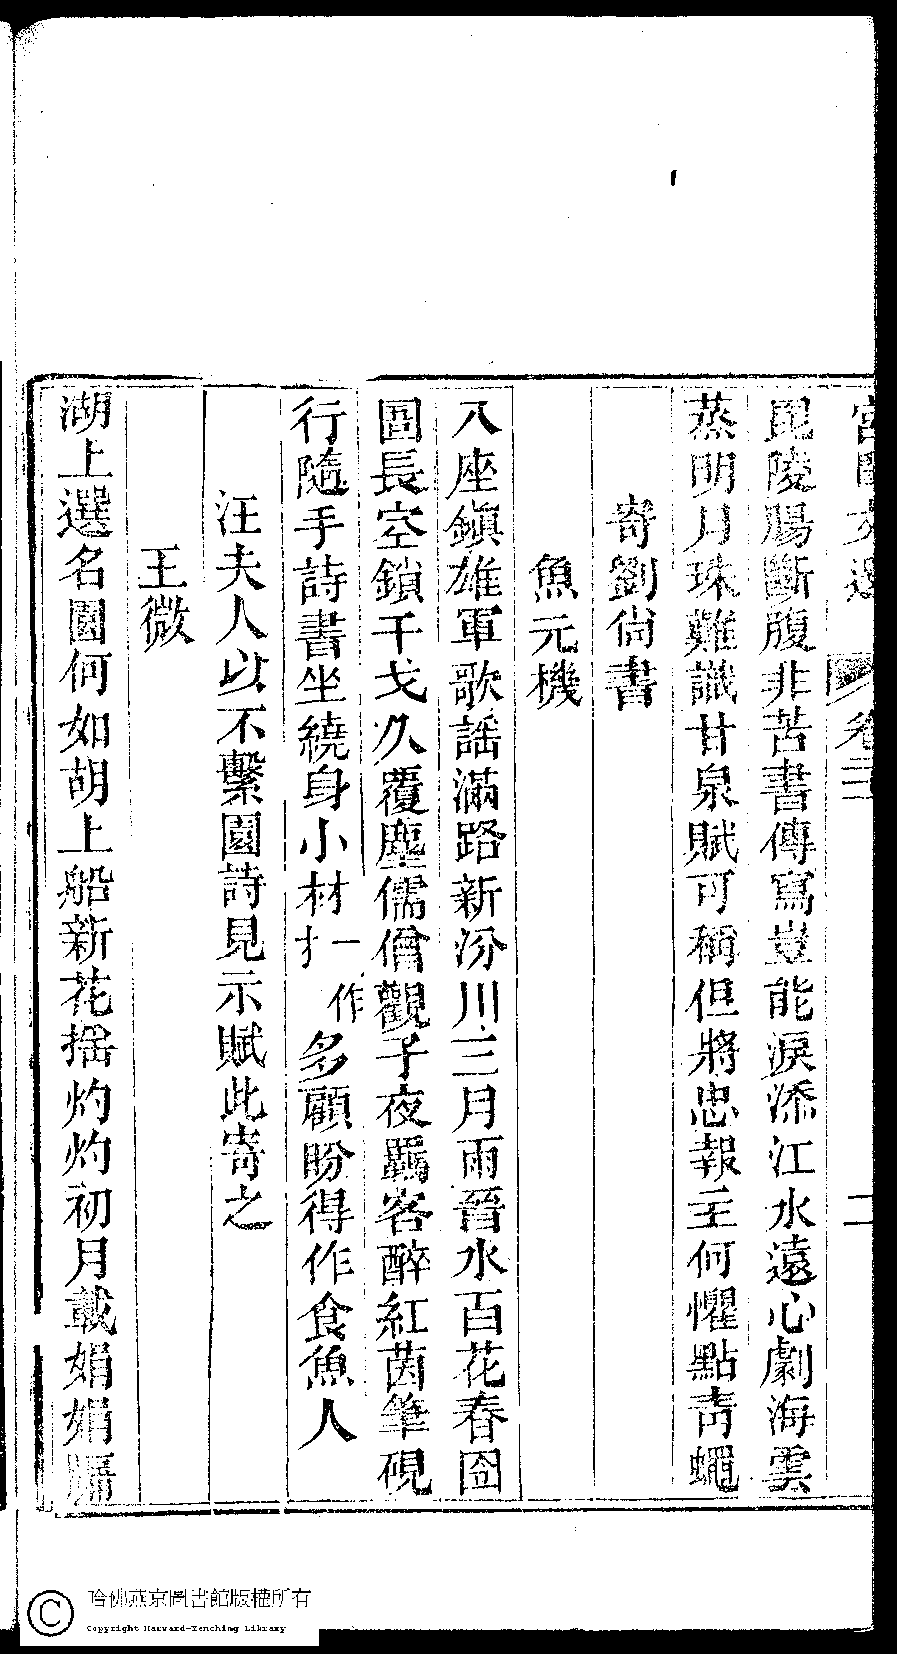 宮閨文選 卷二 二
毘陵腸斷腹非苦書傳寫豈能淚添江水遠心劇海雲
蒸明月珠難識甘泉賦可稱但將忠報主何懼點靑蠅
寄劉尙書
魚元機
八座鎭雄軍歌謠滿路新汾川三月雨晉水百花春囹
圄長空鎖干戈久覆塵儒僧觀子夜羈客醉紅茵筆硯
行隨手詩書坐繞身小材一作才多顧盼得作食魚人
汪夫人以不繫園詩見示賦此寄之
王微
湖上選名園何如胡上船新花搖灼灼初月載娟娟牖
哈佛燕京圖書館版權所有
Copyright Harvard-Yenching Library